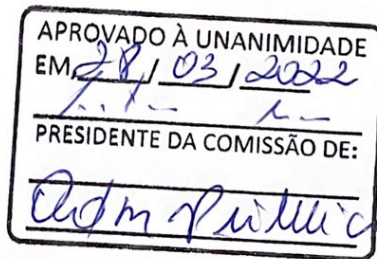 APROVADO À UNANIMIDADE
EM 28 / 03 / 2022
PRESIDENTE DA COMISSÃO DE:
Adm Pública